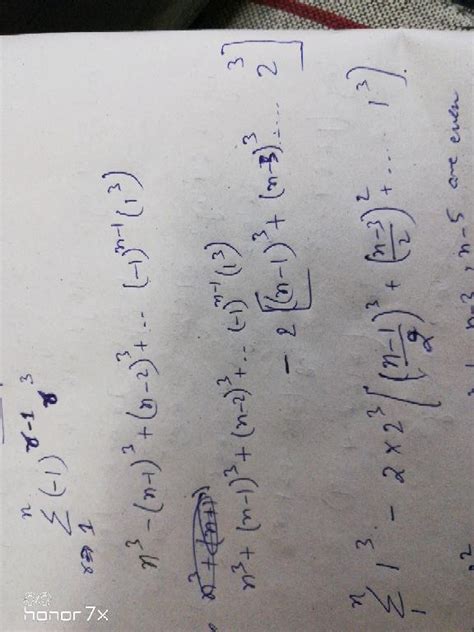 n
Σ (-1)^{r-1} r^3
r=1
n^3 - (n+1)^3 + (n-2)^3 + ... (-1)^{n-1} (1^3)
n^3 + (n-1)^3 + (n-2)^3 + ... (-1)^{n-1} (1^3)
- 2 [(n-1)^3 + (n-3)^3 ... 2^3]
n
Σ 1^3 - 2 × 2^3 [((n-1)/2)^3 + ((n-3)/2)^2 + .... 1^3).
1
n-3, n-5 are even
honor 7x